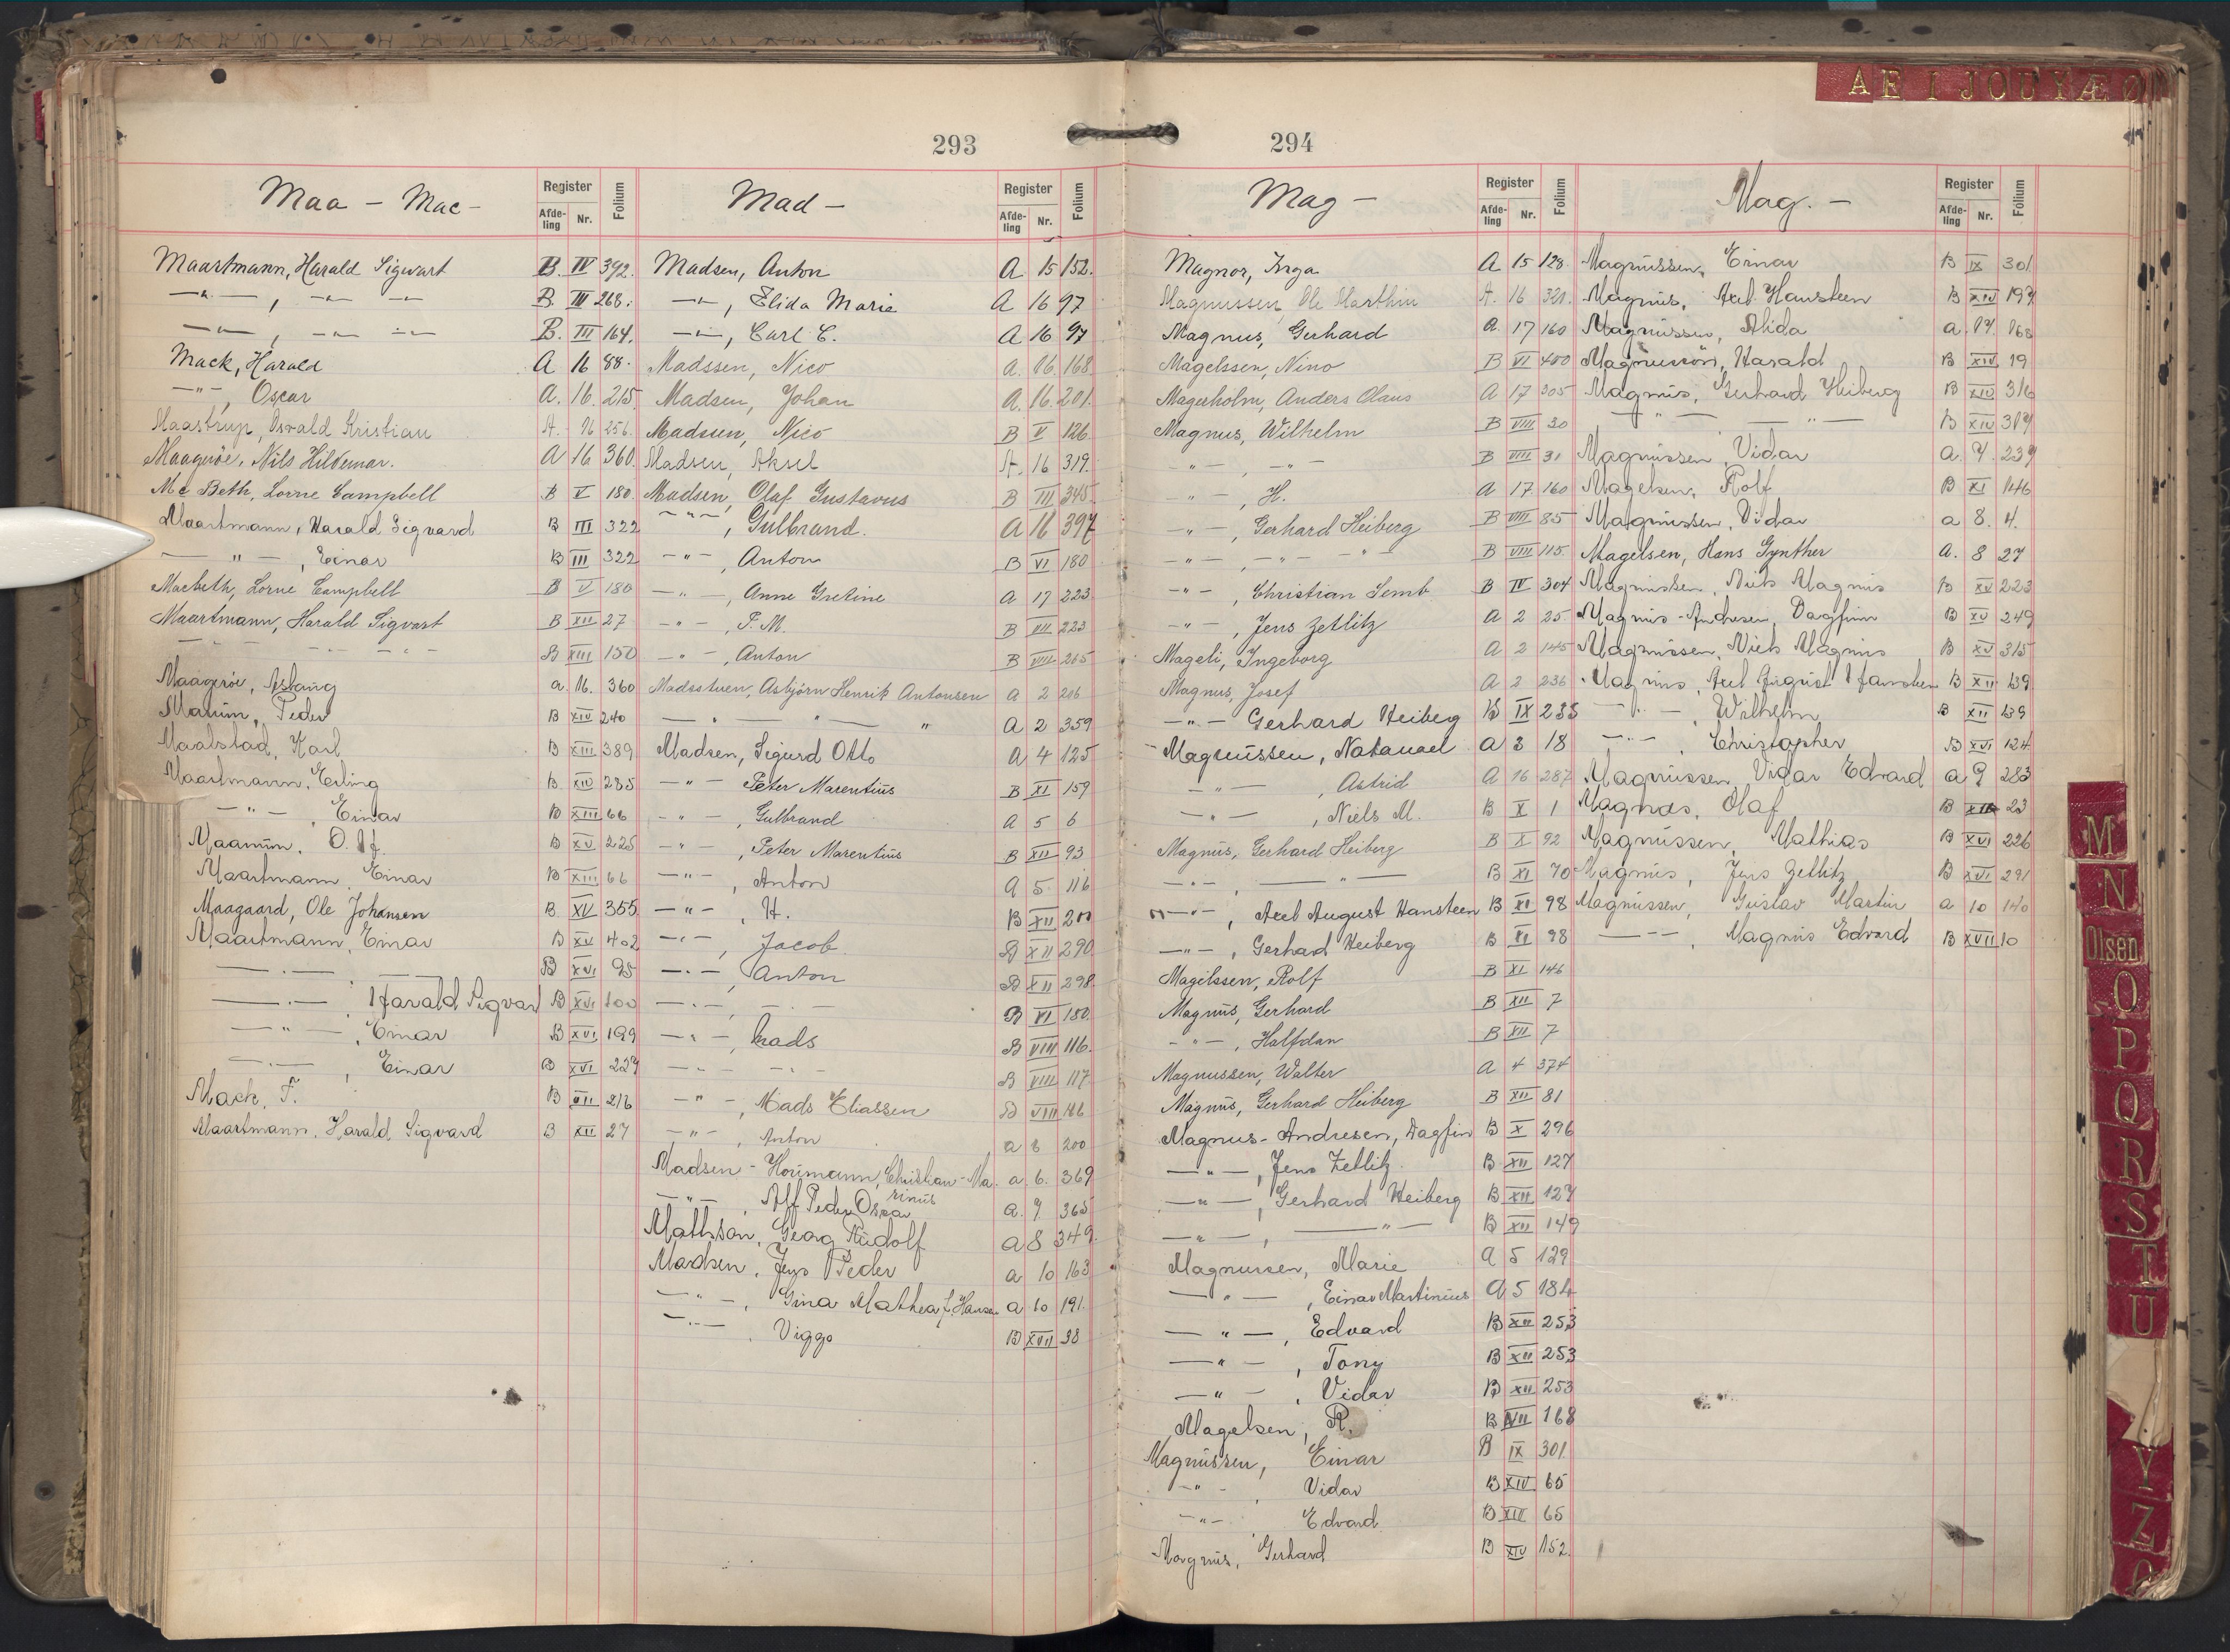 A E I J O U Y Æ Ø
293
Maa - Mac -
Register Afde-ling Nr. Folium
Maartmann, Harald Sigwart B. IV 392.
—"—, —"— — B. III 268.
—"—, —"— — B. III 164.
Mack, Harald A 16 88.
—"—, Oscar A. 16. 215.
Maastrup, Osvald Kristian A. 16 256.
Maageröe, Nils Hildemar. A 16 360.
Mc Beth, Lorne Campbell B V 180.
Maartmann, Harald Sigvard B III 322
— " —, Einar B III 322
Macbeth, Lorne Campbell B V 180
Maartmann, Harald Sigvart B XII 27
— " — — " — B XIII 150
Maageröe, Aslaug a. 16. 360
Manum, Peder B XIV 240
Maalstad, Karl B XIII 389
Maartmann, Erling B. XIV 285
— " —, Einar B XIII 66
Maanum, O. Alf. B XV 225
Maartmann, Einar B XIII 66
Maagaard, Ole Johansen B. XV 355
Maartmann, Einar B XV 402
—"—, — B XVI 95
—"—, Harald Sigvard B XVI 100
— " —, Einar B XVI 199
—"—, Einar B XVI 227
Mack, F. B VII 216
Maartmann, Harald Sigvard B XII 27
Mad -
Register Afde-ling Nr. Folium
Madsen, Anton A 15 152.
—"—, Elida Marie A 16 97
—"—, Carl C. A 16 97
Madssen, Nico A. 16. 168
Madsen, Johan A. 16. 201.
Madssen, Nico B V 126.
Madsen, Aksel A. 16 319.
Madsen, Olaf Gustavus B III 345
— " —, Gulbrand. A 16 397
— " —, Anton B VI 180
— " —, Anne Gretine A 17 223
— " —, P. M. B VII 223
— " —, Anton B VIII 265
Madsstuen, Asbjörn Henrik Antonsen A 2 206
— " — " — " A 2 359
Madsen, Sigurd Otto A 4 125
— " — Peter Marentius B XI 159
— " —, Gulbrand A 5 6
— " —, Peter Marentius B XII 93
— " —, Anton A 5. 116
— " —, H. B XII 200
— " —, Jacob B XII 290
— " —, Anton B XII 298
— " —, — B VI 180.
— " —, Mads B VIII 116.
— " — — " — B VIII 117
— " —, Mads Eliassen B VIII 116
— " —, Anton a 8 200
Madsen - Houmann, Christian Ma- a. 6. 369
rinus
— " —, Alf Peder Oscar a. 7 365
Mathson, Georg Rudolf a 8 349.
Madsen, Jens Peder a 10 163
— " —, Gina Mathea f. Hansen a 10 191.
— " —, Viggo B XVII 38
294
Mag -
Register Afde-ling Nr. Folium
Magnor, Inga A 15 128.
Magnussen, Ole Marthin A. 16 321.
Magnus, Gerhard A. 17 160
Magelssen, Nino B VI 400
Magerholm, Anders Olaus A 17 305
Magnus, Wilhelm B VIII 30
— " —, — " — B VIII 31
— " —, H. A 17 160
— " —, Gerhard Heiberg B VIII 85
— " — — " — — " — B VIII 115.
— " —, Christian Semb B IV 304
— " —, Jens Zetlitz A 2 25
Mageli, Ingeborg A 2 145
Magnus, Josef A 2 236
— " — Gerhard Heiberg B IX 235
Magnussen, Natanael A 3 18
— " —, Astrid A 16 287
— " —, Niels M. B X 1
Magnus, Gerhard Heiberg B X 92
— " —, — " — B XI 70
— " —, Axel August Hansteen B XI 98
— " —, Gerhard Heiberg B XI 98
Magelssen, Rolf B XI 146
Magnus, Gerhard B XII 7
— " —, Halfdan B XII 7
Magnussen, Walter A 4 374
Magnus, Gerhard Heiberg B XII 81
Magnus-Andresen, Dagfin B X 296
— " —, Jens Zetlitz B XII 127
— " —, Gerhard Heiberg B XII 127
— " —, — " — B XII 149
Magnussen, Marie A 5 129
— " —, Einar Martinius A 5 184
— " —, Edvard B XII 253
— " —, Tony B XII 253
— " —, Vidar B XII 253
Magelsen, R. B VII 168
Magnussen, Einar B IX 301
— " — Vidar B XIV 65
— " — Edvard B XIV 65
Magnus, Gerhard B XIV 152.
Mag. -
Register Afde-ling Nr. Folium
Magnussen, Einar B IX 301.
Magnus, Axel Hansteen B XIV 197
Magnussen, Alida a. 17. 168
Magnusson, Harald B XIV 19
Magnus, Gerhard Heiberg B XIV 316
— " — — " — B XIV 319
Magnussen, Vidar a. 7. 239
Magelsen, Rolf B XI 146
Magnussen, Vidar a 8. 4.
Magelsen, Hans Gynther A. 8 27
Magnussen, Niels Magnus B XV 223
Magnus-Andresen, Dagfinn B XV 249
Magnussen, Niels Magnus B XV 315
Magnus, Axel August Hansteen B XII 139
— " —, Wilhelm B XII 139
— " —, Christopher B XVI 124
Magnussen, Vidar Edvard a 9 283
Magnus, Olaf B 23
Magnussen, Mathias B XVI 226
Magnus, Jens Zetlitz B XVI 291
Magnussen, Gustav Martin a 10 140
— " —, Magnus Edvard B XVII 10
M
N
Olsen
O
P
Q
R
S
T
U
Y
Z